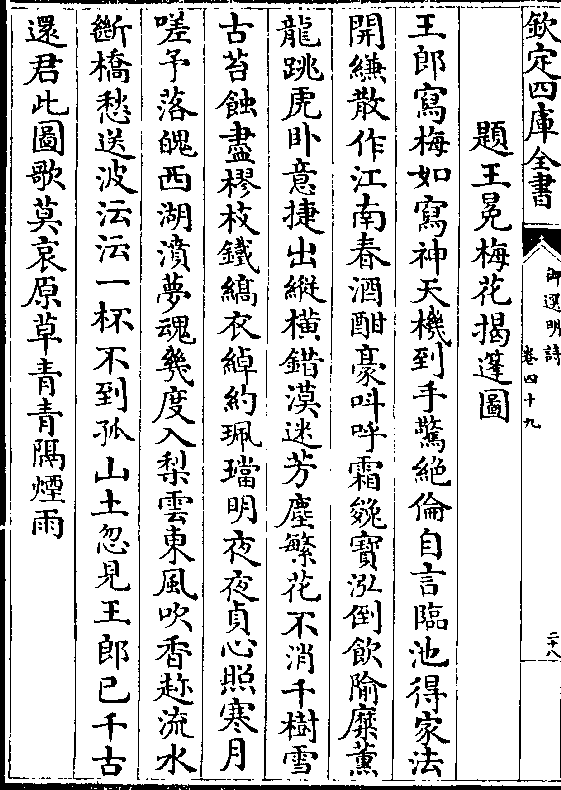 欽定四庫全書
御選明詩
卷四十九
二十八
題王冕梅花揭篷圖
王郎寫梅如寫神天機到手驚絶倫自言臨池得家法
開縑散作江南春酒酣豪呌呼霜㕙寶泓倒飲隃糜薰
龍跳虎卧意捷出縱横錯漠迷芳塵繁花不消千樹雪
古苔蝕盡樛枝鐵縞衣綽約珮璫明夜夜貞心照寒月
嗟予落魄西湖濆夢魂幾度入梨雲東風吹香趂流水
斷橋愁送波沄沄一杯不到孤山土忽見王郎已千古
還君此圖歌莫哀原草青青隔煙雨